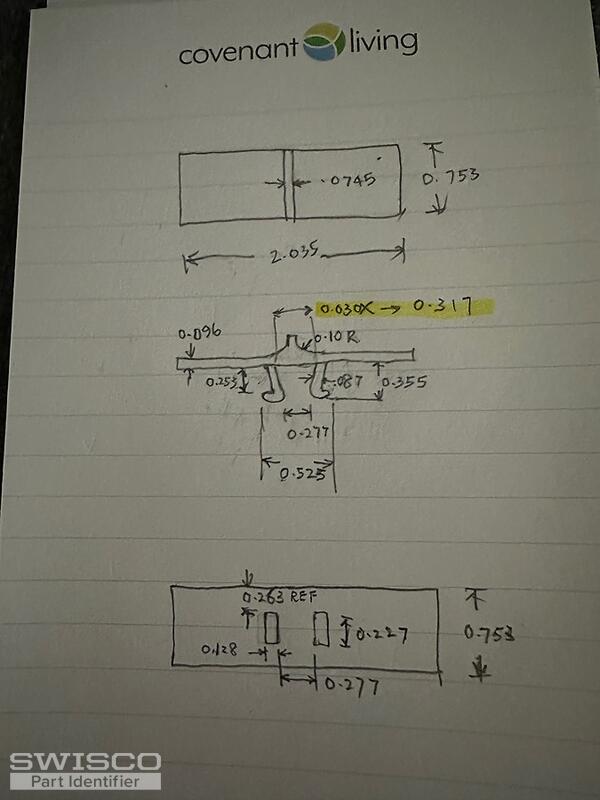 covenant living
.0745
0.753
2.035
0.030X → 0.317
0.096
0.10R
0.253
.087
0.355
0.277
0.525
0.263 REF
0.227
0.753
0.128
0.277
SWISCO
Part Identifier